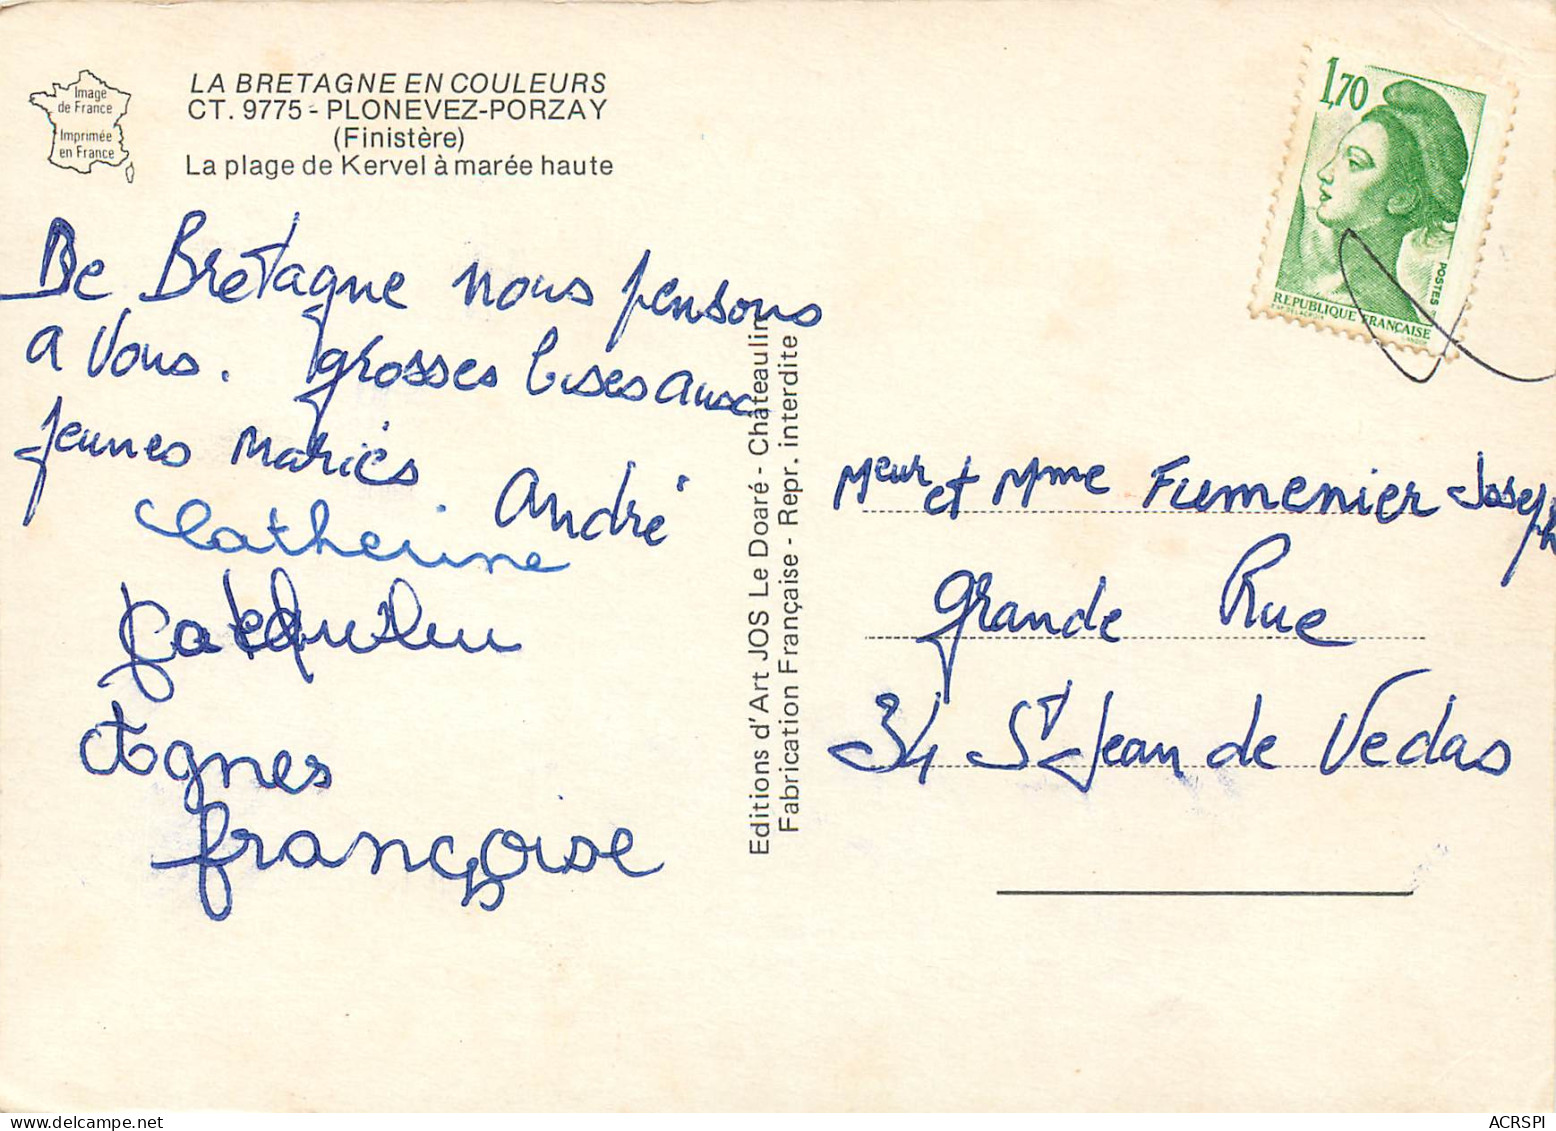 Image
de France
Imprimée
en France
LA BRETAGNE EN COULEURS
CT. 9775 - PLONEVEZ-PORZAY
(Finistère)
La plage de Kervel à marée haute
De Bretagne nous pensons
a vous. grosses bises aux
jeunes mariés
André
Catherine
Agnes
françoise
Editions d'Art JOS Le Doaré - Châteaulin
Fabrication Française - Repr. interdite
1,70
POSTES
REPUBLIQUE FRANÇAISE
Meur et Mme Fumenier Joseph
grande Rue
34 St Jean de Vedas
ACRSPI